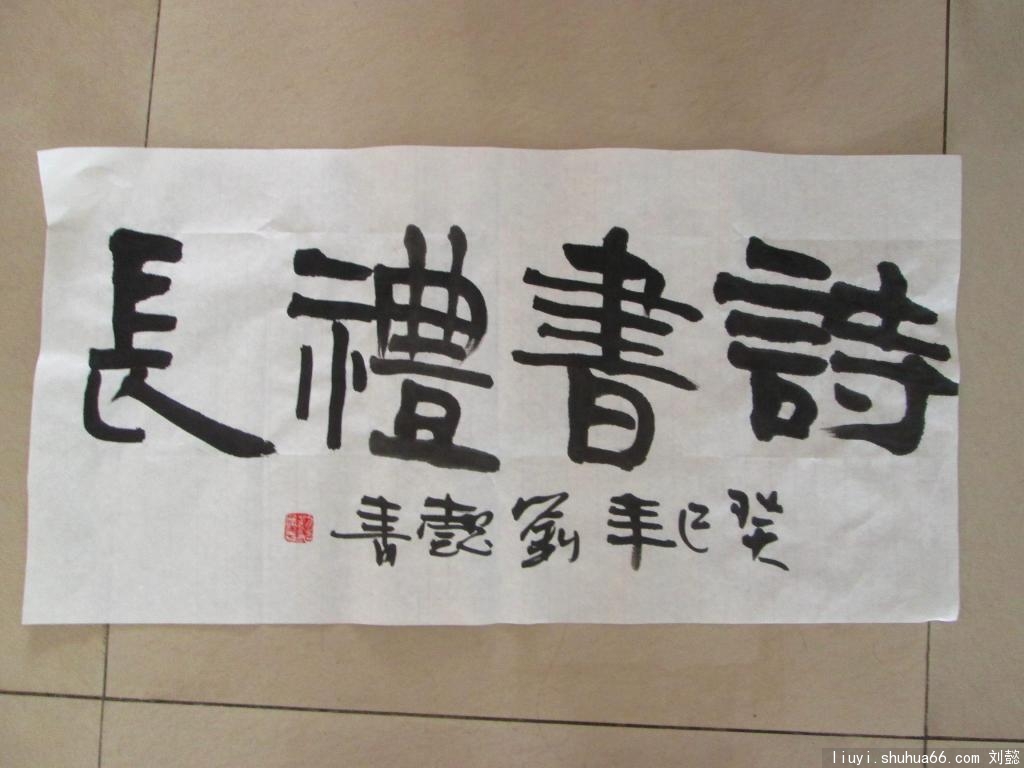 詩書禮長
癸巳年劉懿書
liuyi.shuhua66.com 刘懿